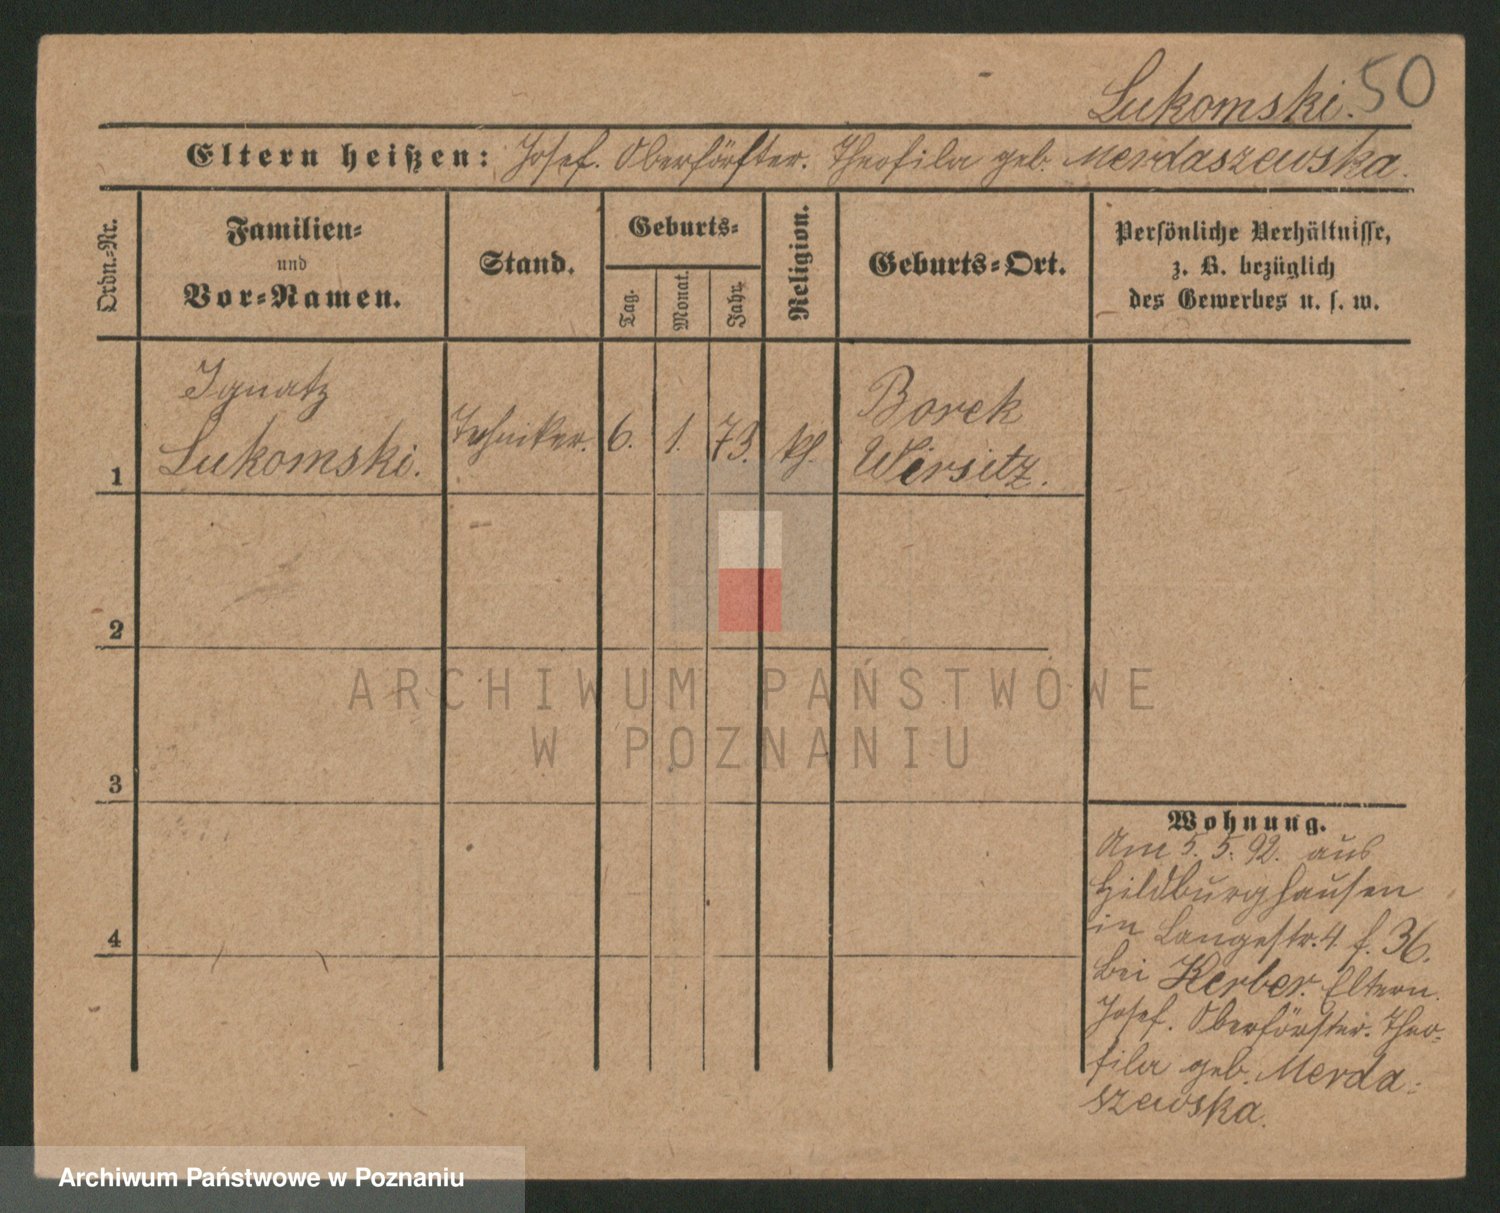 Lukomski. 50
Eltern heißen: Josef. Oberförster. Theofila geb. Merdaszewska.
Ordn.-Nr.
Familien-
und
Vor-Namen.
Stand.
Geburts-
Tag.
Monat.
Jahr.
Religion.
Geburts-Ort.
Persönliche Verhältnisse,
z. B. bezüglich
des Gewerbes u. s. w.
1
Ignatz
Lukomski.
Techniker.
6.
1.
73.
kh.
Borek
Wirsitz.
2
3
4
Wohnung.
Am 5. 5. 92. aus
Hildburghausen
in Langestr. 4 f. 36.
bei Kerber. Eltern.
Josef. Oberförster. Theo-
fila geb. Merda-
szewska.
ARCHIWUM PAŃSTWOWE
W POZNANIU
Archiwum Państwowe w Poznaniu